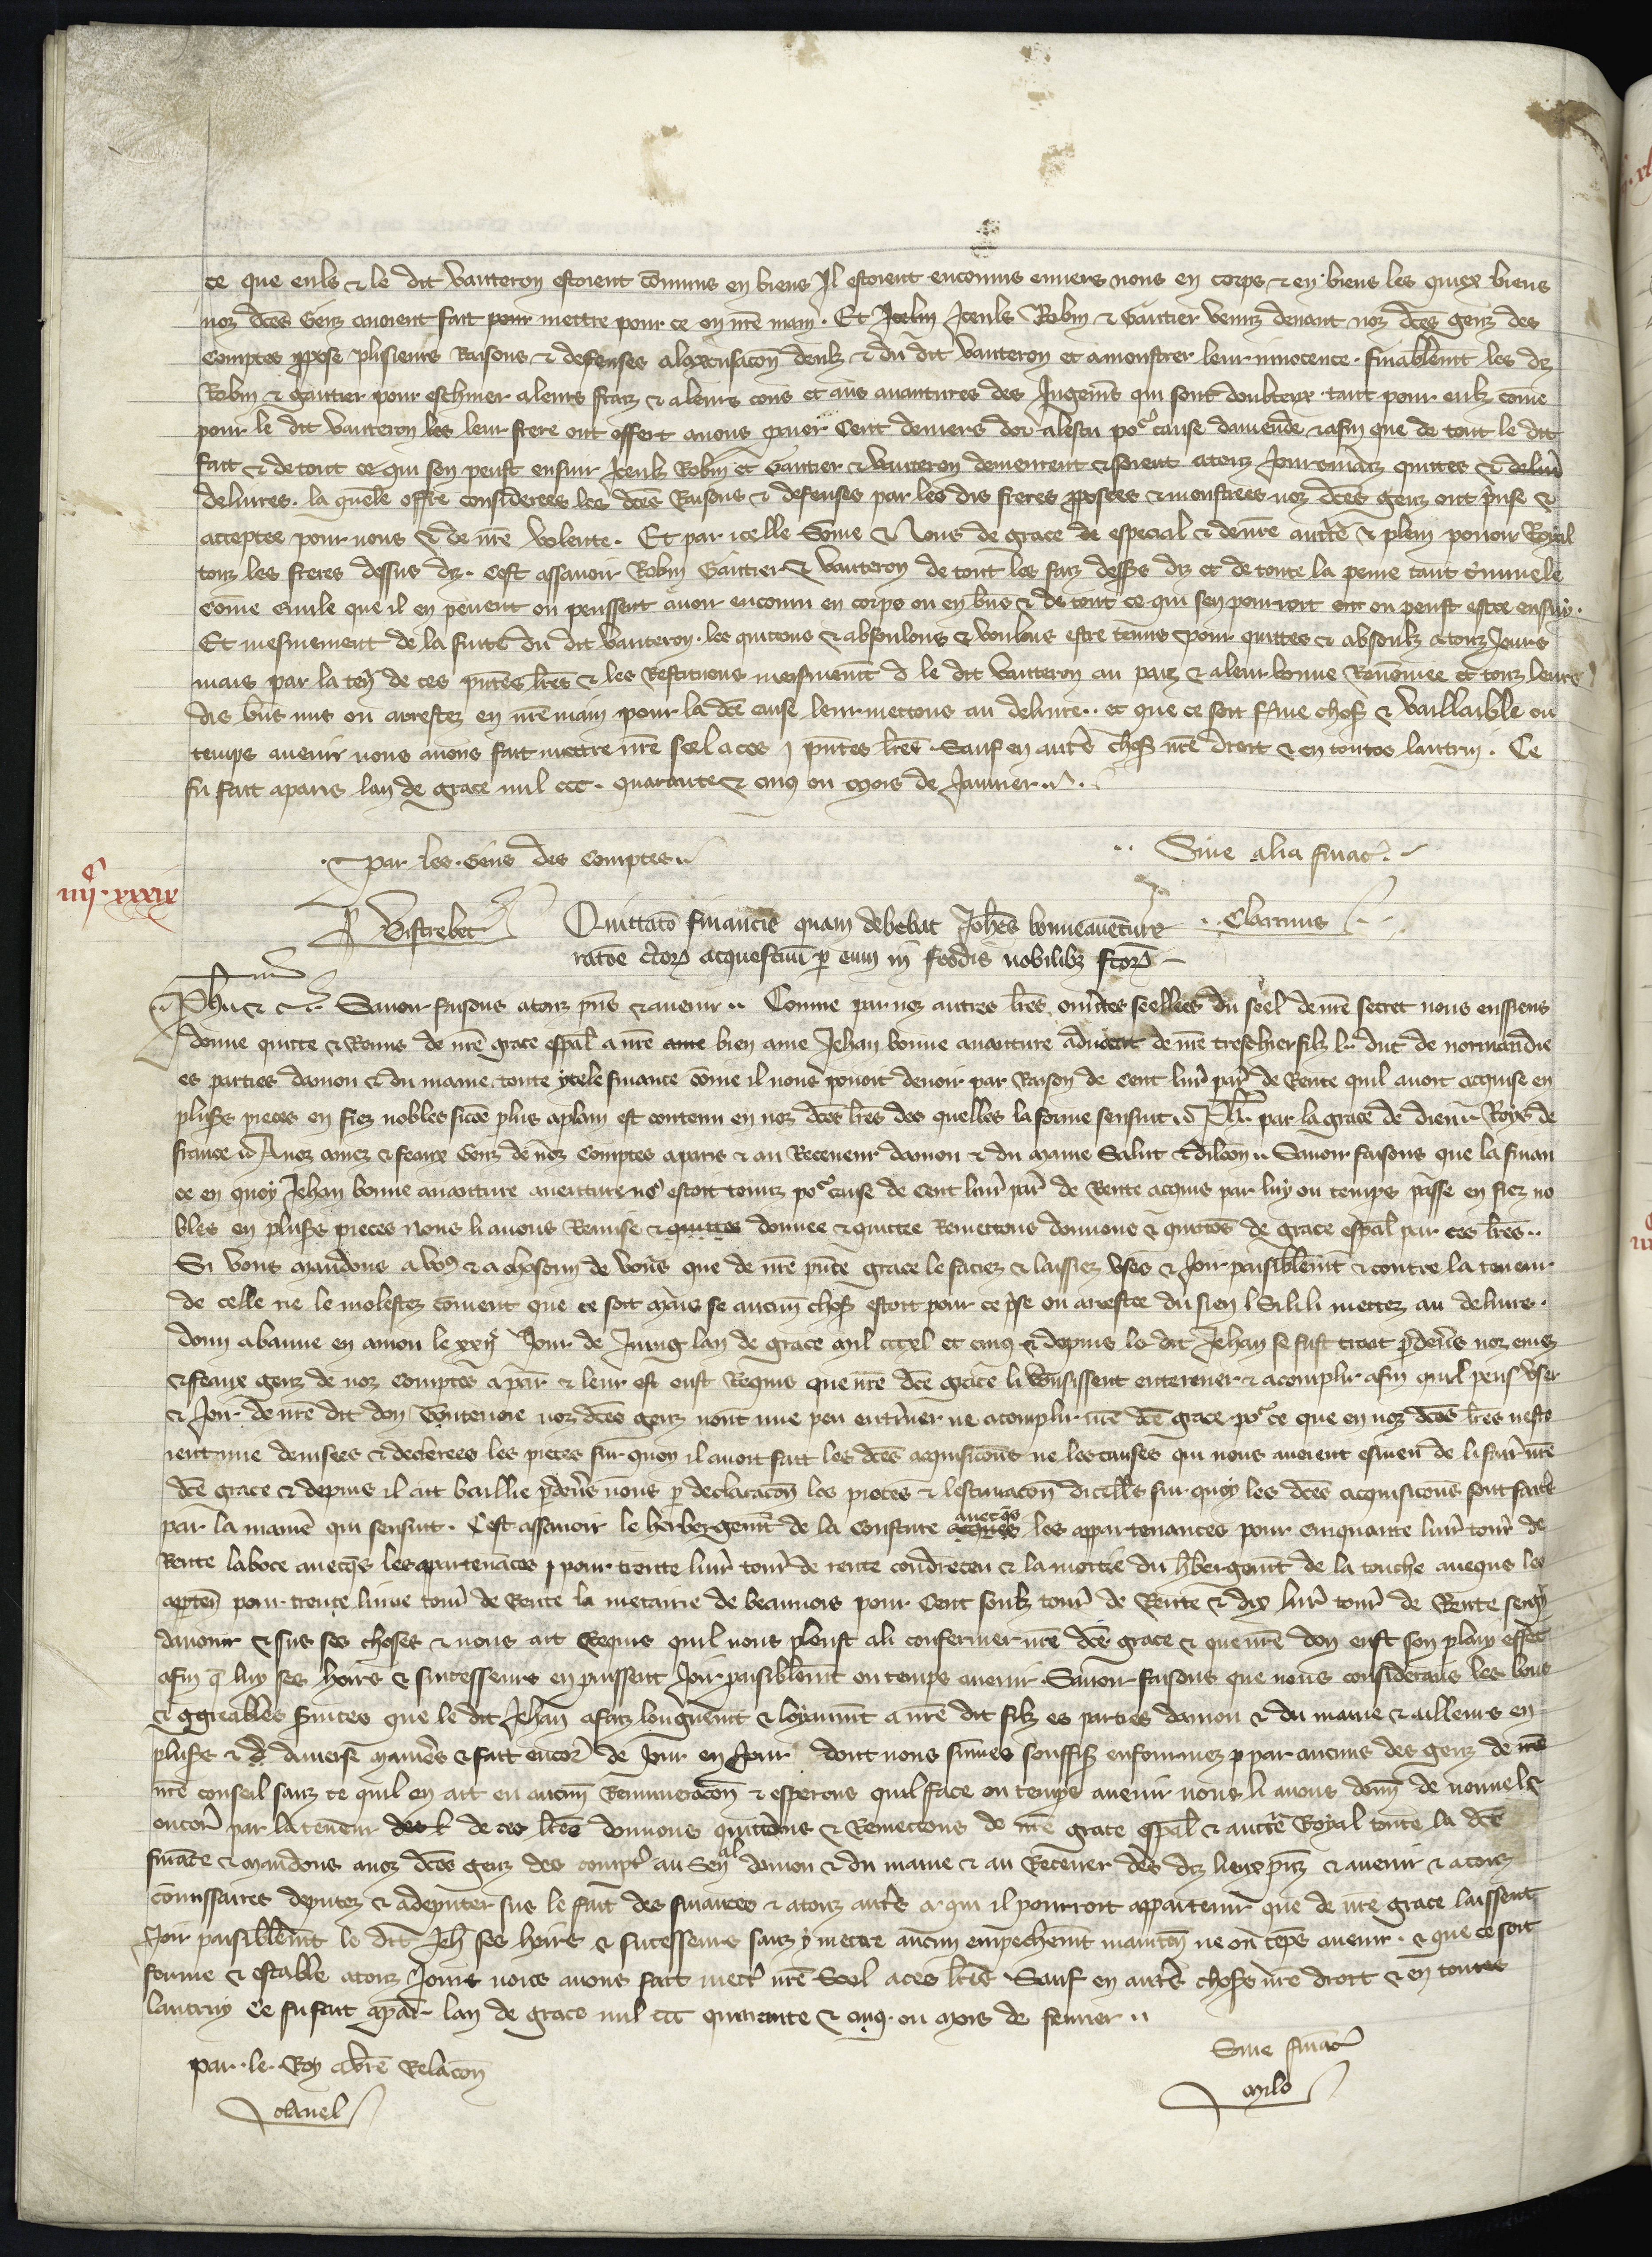 ce que euls & le dit Vauteron estoient cōmuns en biens Il estoient encouruz enuers nous en corps & en biens les quiex biens
noz dc̄es Genz auoient fait pour mettre pour ce en nr̄e main. Et Icelui Iceuls Robin & Gautier venuz deuant noz dc̄es genz des
Comptes ꝓpose plusieurs Raisons & defenses a lexcusacōn deulz & du dit Vauteron et a monstrer leur innocence. finablemēt les dz
Robin & gautier pour eschiuer a leurs fraiz & a leurs cous et aus auantures des Iugemēs qui sont doubteux tant pour eulz cōme
pour le dit Vauteron les leur frere ont offert a nous paier Cent deniers dor a lescu poᵉ cause damende & afin que de tout le dit
fait & de tout ce qui sen peust ensuir Iceulz Robin et Gautier & Vauteron demeurent & soient a touz Iourz mais quittes & deliur̄
deliures. la quele offre considerees les dc̄es Raisons & defenses par les dis freres ꝓposees & monstrees noz dc̄es genz ont p̄nse &
acceptee pour nous & de nr̄e volente. Et par icelle Sōme & Nous de grace de especial & de nr̄e auct̄e & plein pouoir Royal
touz les freres dessus dz. Cest assauoir Robin Gautier & Vauteron de tout les faiz dess̄s dz et de toute la peine tant crimnele
cōme ciuile que il en peuent ou peussent auoir encouru en corps ou en bn̄s & de tout ce qui sen pourroit ou peust estre ensuy.
Et mesmement de la fuite du dit Vauteron. les quittons & absoulons & voulons estre tenus pour quittes & absoulz a touz Iours
mais par la ten̄ de ces pn̄tes lr̄es & les Restituons meismemēt le dit Vauteron au paiz & a leur bonne Renōmee et touz leurs
dis bn̄s mis ou arrestez en nr̄e main pour la dc̄e cause leur mettons au deliure.. et que ce soit ferme chose & vaillable ou
temps auenir nous auons fait mettre nr̄e seel a ces pn̄tes lr̄es. Sauf en autr̄e chose nr̄e droit & en toutes lautrui. Ce
fu fait a paris lan de grace mil ccc. quarante & cinq ou mois de Januier..
par les Gens des comptes.. Sine alia financ̄.
iiijᶜ. xxxix
Vistrebec Clarinus
Quittatō financie quam debebat Joh̄es bonneauenture
ratōe c̄tor acquestuū p eum in feodis nobilibz factor̄
Ph̄u &c. Sauoir faisons a touz pn̄s & auenir.. Comme par noz autres lr̄es ouu̓tes seellees du seel de nr̄e secret nous eussiens
donne quitte & Remis de nr̄e grace esp̄al a nr̄e ame bien ame Jehan bonne auanture aduocat de nr̄e treschier filz le duc de normandie
es parties daniou & du maine toute ytele finance cōme il nous pouoit deuoir par Raison de Cent liur̄ par̄ de Rente quil auoit acquise en
pluss̄ pieces en fiez nobles sicōe plus a plain est contenu en noz dc̄es lr̄es des quelles la forme sensuit Ph̄. par la grace de dieu Roys de
france A noz amez & feaux Genz de noz Comptes a paris & au Receueur daniou & du maine Salut & dilcōn.. Sauoir faisons que la finan
ce en quoy Jehan bonne auanture auenture noᵉ estoit tenuz poᵉ cause de cent liur̄ par̄ de Rente acquis par luy ou temps passe en fiez no
bles en pluss̄ pieces Nous li auons Remise & quittee donnee & quittee Remettons donnons & quittōs de grace esp̄al par ces lr̄es..
Si vous Mandons a voᵉ & a chascun de vouˢ que de nr̄e pn̄te grace le faciez & laissiez vser & Joir paisiblemēt & contre la teneur
de celle ne le molestez cōment que ce soit Mais se aucune chose estoit pour ce p̄se ou arrestee du sien Si li li mettez au deliure.
donn a baune en aniou le xxijᵉ Jour de Juing lan de grace mil cccxl et cinq & depuis le dit Jehan se fust trait p̄deu̓s noz amez
& feaux genz de noz Comptes a par̄ & leur est eust Requis que nr̄e dc̄e grace li vousissent enteriner & acomplir afin quil peust vser
& Joir de nr̄e dit don Toutesuoie noz dc̄es genz nont mie peu enter̄iner ne acomplir nr̄e dc̄e grace poᵉ ce que en noz dc̄es lr̄es nesto
ient mie deuisees & declerees les pieces sur quoy il auoit fait les dc̄es acquisicōns ne les causes qui nous auoient esmeu de li faire nr̄e
dc̄e grace & depuis il ait baillie p̄deu̓s nous ꝑ declaracōn les pieces & lestimacōn dicelles sur quoy les dc̄es acquisicōns sont faites
par la manīe qui sensuit. Cest assauoir le herbergemēt de la Cousture aueq̄s les appartenances pour cinquante liur̄ tour̄ de
Rente laboce auecq̄s les apartenāces pour trente liur̄ tour̄ de rente condreceu & la moitie du h̄bergemēt de la touche aueques les
apartēn pour trente liures tour̄ de Rente la metairie de beauuois pour Cent soulz tour̄ de Rente & dix liur̄ tour̄ de Rente
dauoir & sus ses choses & nous ait Requis quil nous pleust a li confermer nr̄e dc̄e grace & que nr̄e don eust son plain effect
afin q̄ luy ses hoirs & successeurs en puissent Joir paisiblemēt ou temps auenir. Sauoir faisons que nous considerans les bons
& agreables s̄uices que le dit Jehan a faiz longuemēt & loyaumēt a nr̄e dit filz es parties daniou & du maine & ailleurs en
pluss̄ & diuerse manīes & fait encor̄ de Jour en Jour dont nous sūmes souffis̄ enfourmez par aucuns des genz de nr̄e
nr̄e conseil sanz ce quil en ait eu aucun Remuneracōn & esperons quil face ou temps auenir nous li auons donn̄ de nouuel &
encor̄ par la teneur de ces lr̄es donnons quittons & Remettons de nr̄e grace esp̄al & auct̄e Royal toute la dc̄e
finance & mandons a noz dc̄es genz des compt̄ au Seneˢᵃˡ daniou & du maine & au Receueur des dz lieux pn̄z & auenir & a touz
cōmissaires deputez & a deputer sus le fait des finances & a touz autr̄es a qui il pourroit appartenir que de nr̄e grace laissent
Joir paisiblemēt le dit Jeh̄ ses hoirs & successeurs sanz y mettre aucun empeschemēt mainten̄ ne ou tēps auenir. & que ce soit
ferme & estable a touz Jours nous auons fait mettr̄ nr̄e Seel a ces lr̄es Sauf en autr̄es choses nr̄e droit & en toutes
lautruy Ce fu fait a par̄ lan de grace mil ccc quarante & cinq. ou mois de feurier..
par. le. Roy a vr̄e Relacōn Sine financ̄
clauel Milo